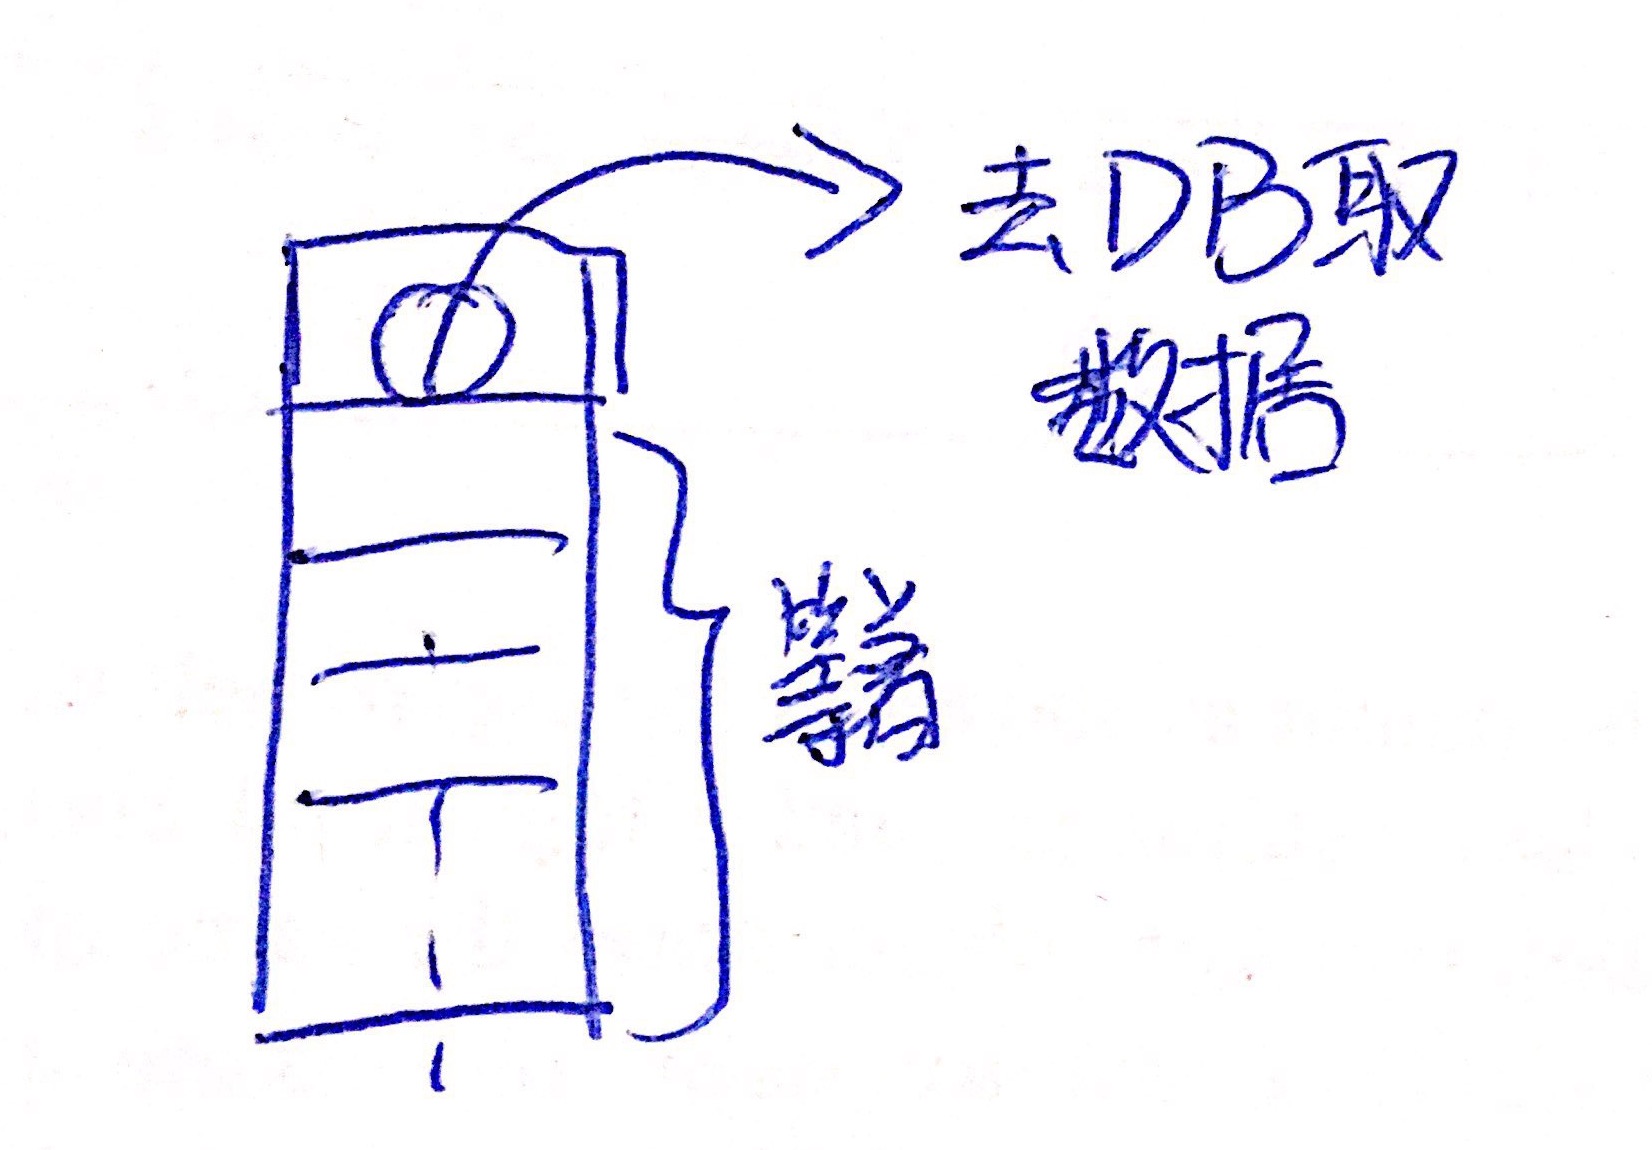 去DB取
数据
等着